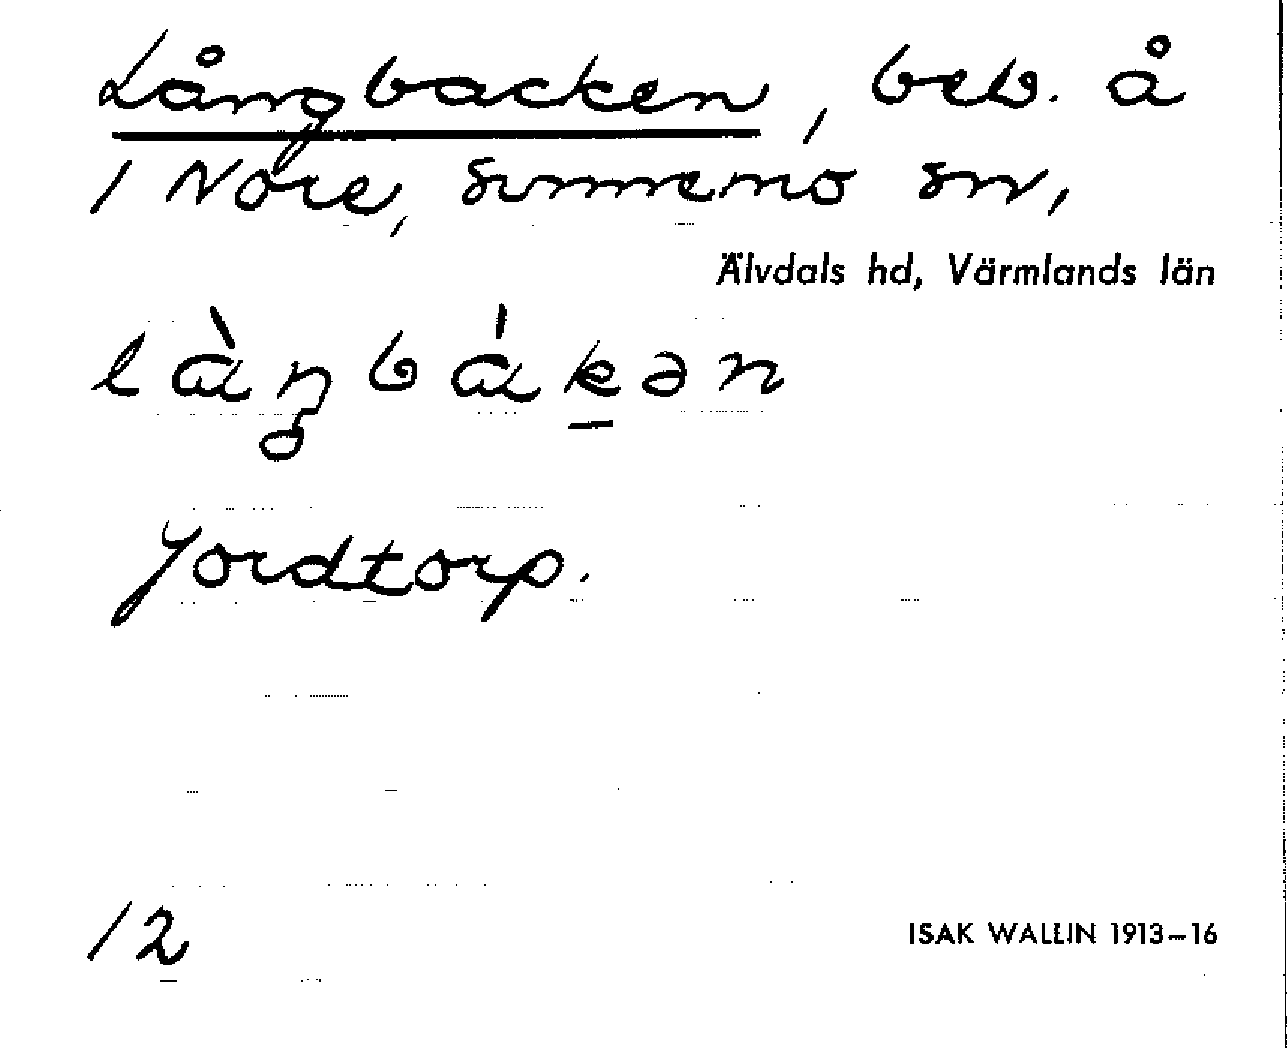 Långbacken, beb. å
1 Nore, Sunnemo sn,
Älvdals hd, Värmlands län
làŋbákən
Jordtorp.
12
ISAK WALLIN 1913–16